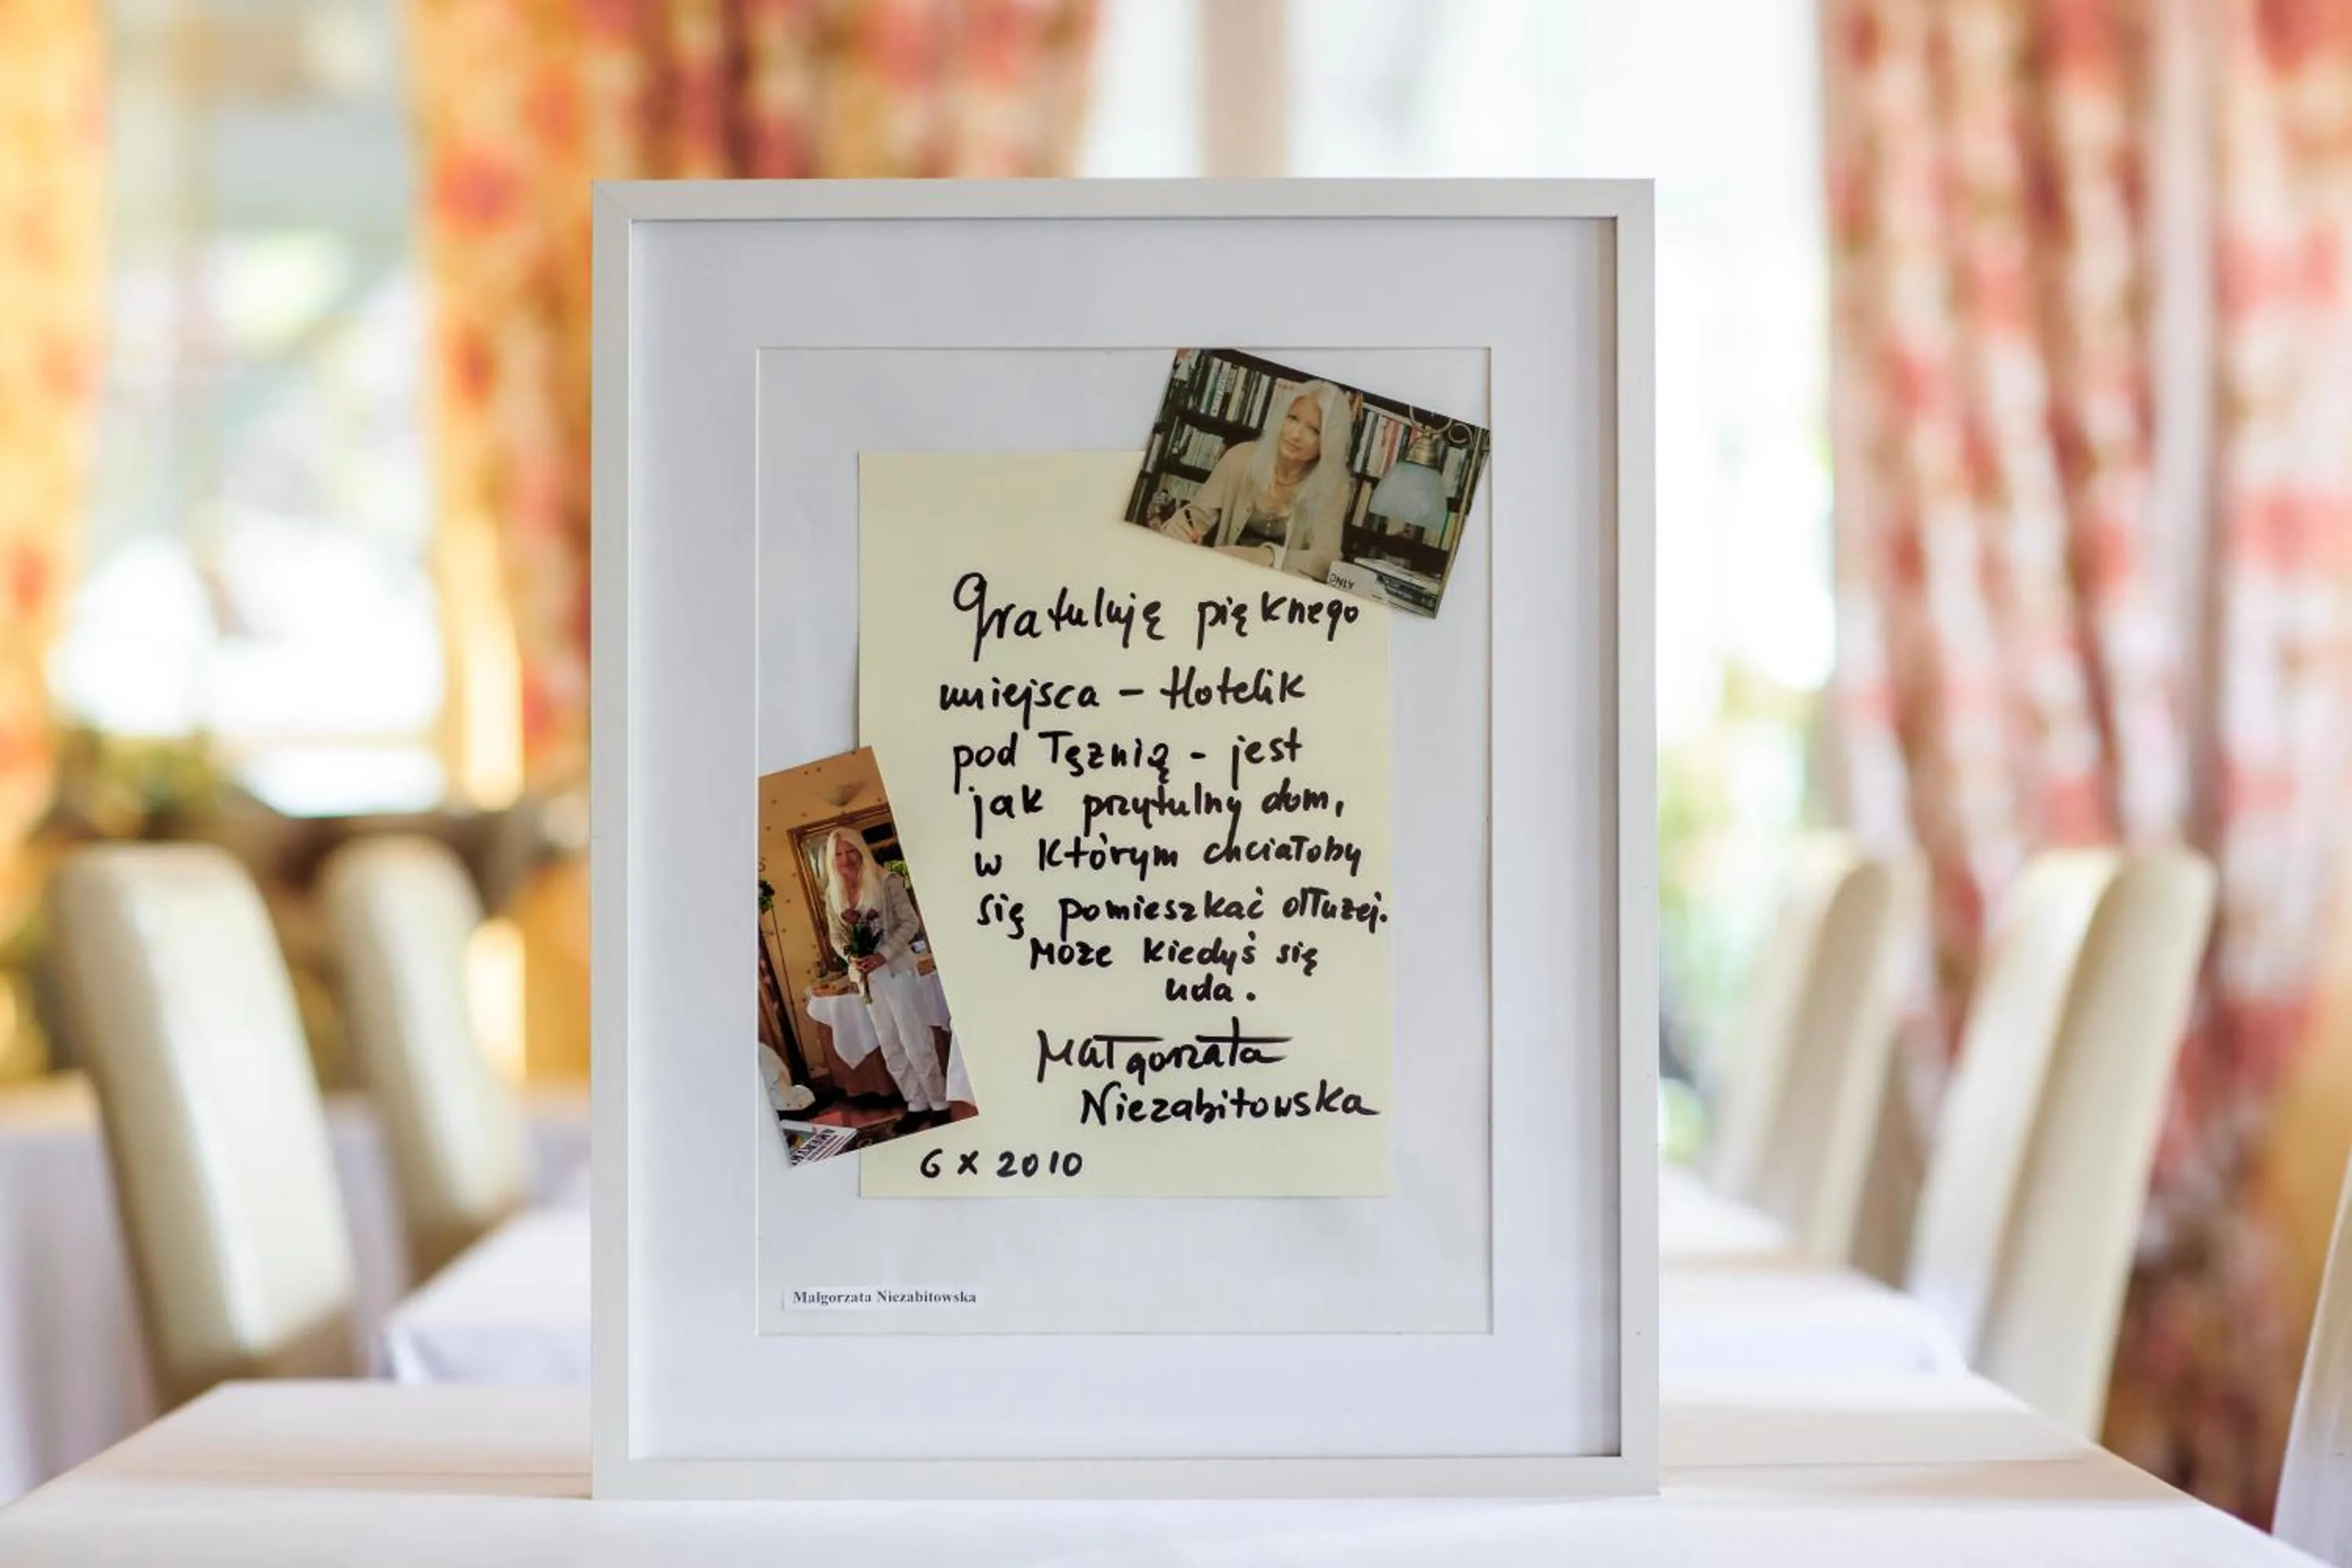 ONLY
Gratuluję pięknego
miejsca – Hotelik
pod Tężnią - jest
jak przytulny dom,
w którym chciałoby
się pomieszkać dłużej.
Może kiedyś się
uda.
Małgorzata
Niezabitowska
6 X 2010
Małgorzata Niezabitowska